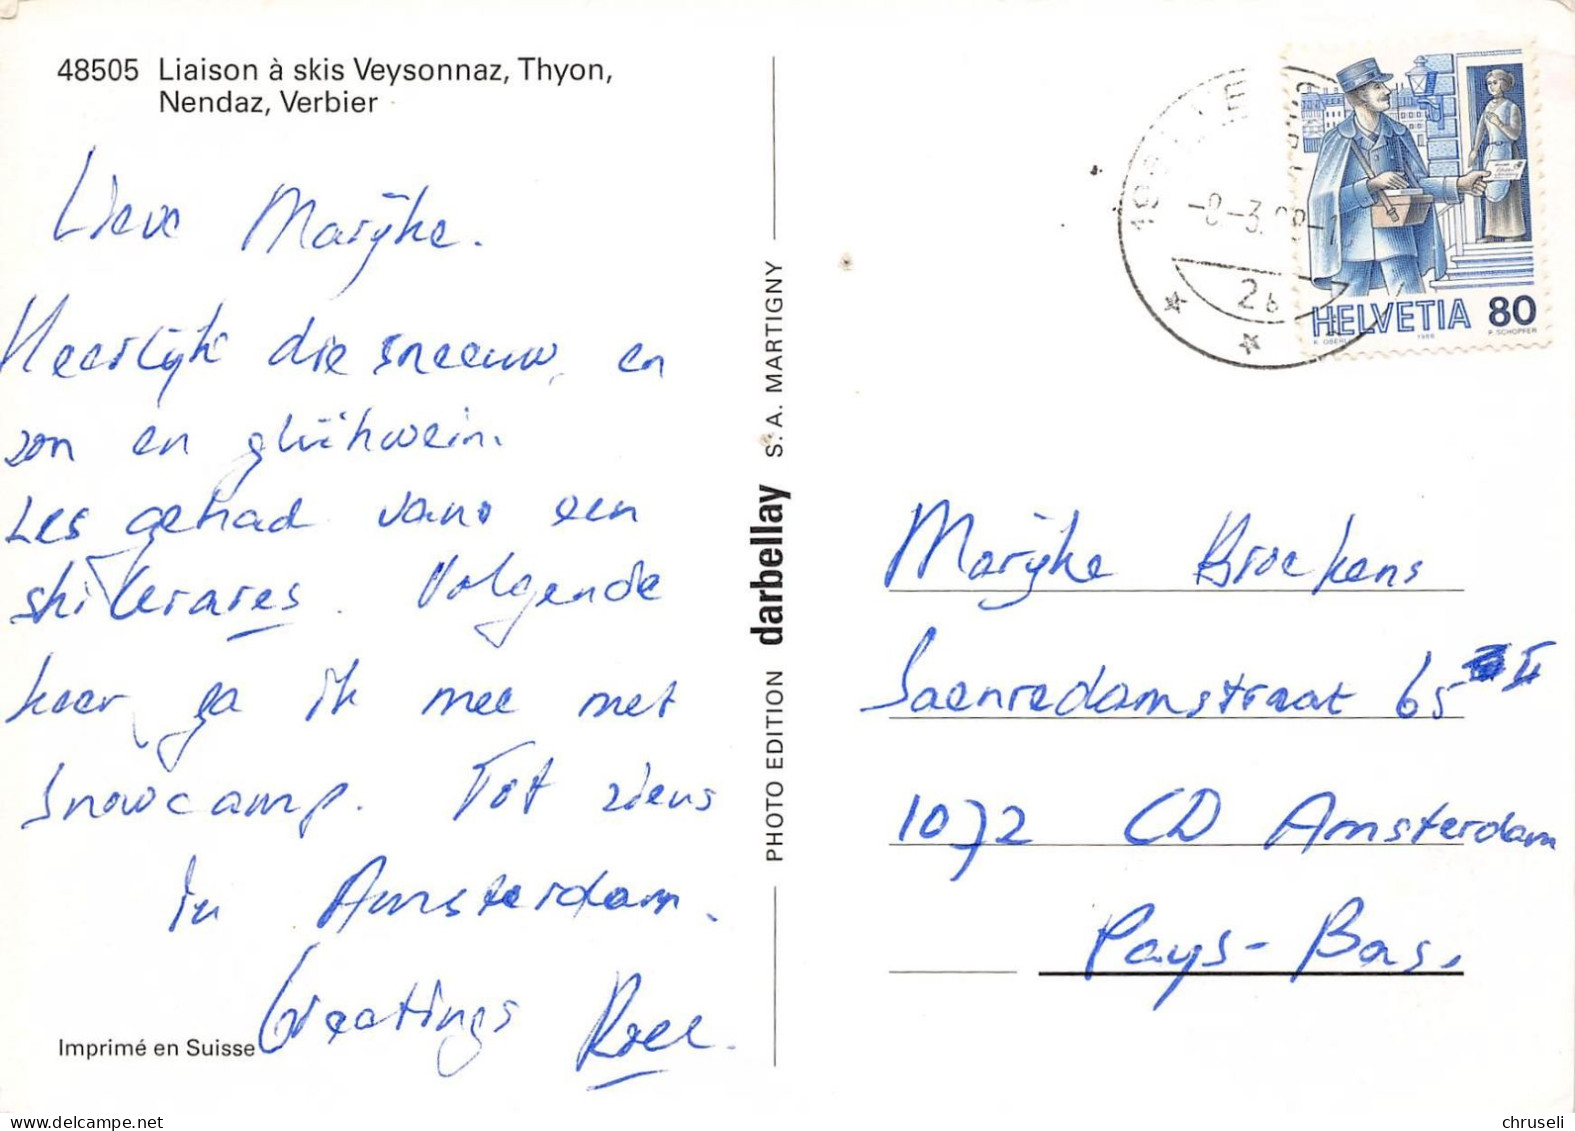 48505 Liaison à skis Veysonnaz, Thyon,
Nendaz, Verbier
Lieve Marijke.
Heerlijk die sneeuw, en
zon en glühwein.
Les gehad van een
skilerares. Volgende
keer ga ik mee met
snowcamp. Tot ziens
in Amsterdam.
Greetings Roel.
Imprimé en Suisse
PHOTO EDITION darbellay S. A. MARTIGNY
-8-3.
26
HELVETIA 80
P. SCHOPFER
Marijke Brockens
Saenredamstraat 65 II
1072 CD Amsterdam
Pays-Bas.
chruseli